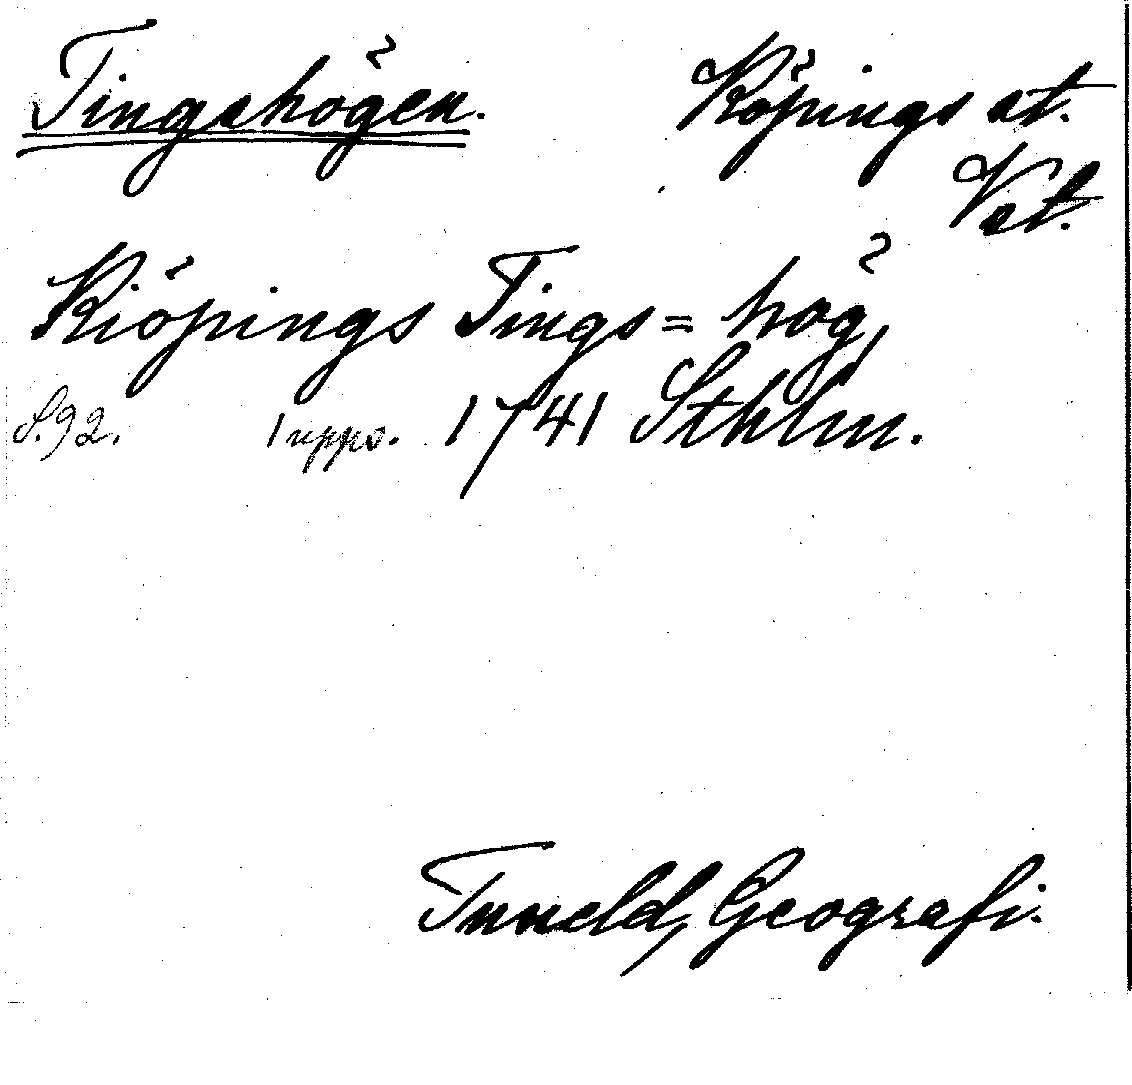 Tingahögen. Köpings st.
Vstl.
Kiöpings Tings=hög,
S.92. 1 uppo. 1741 Sthlm.
Tuneld, Geografi.